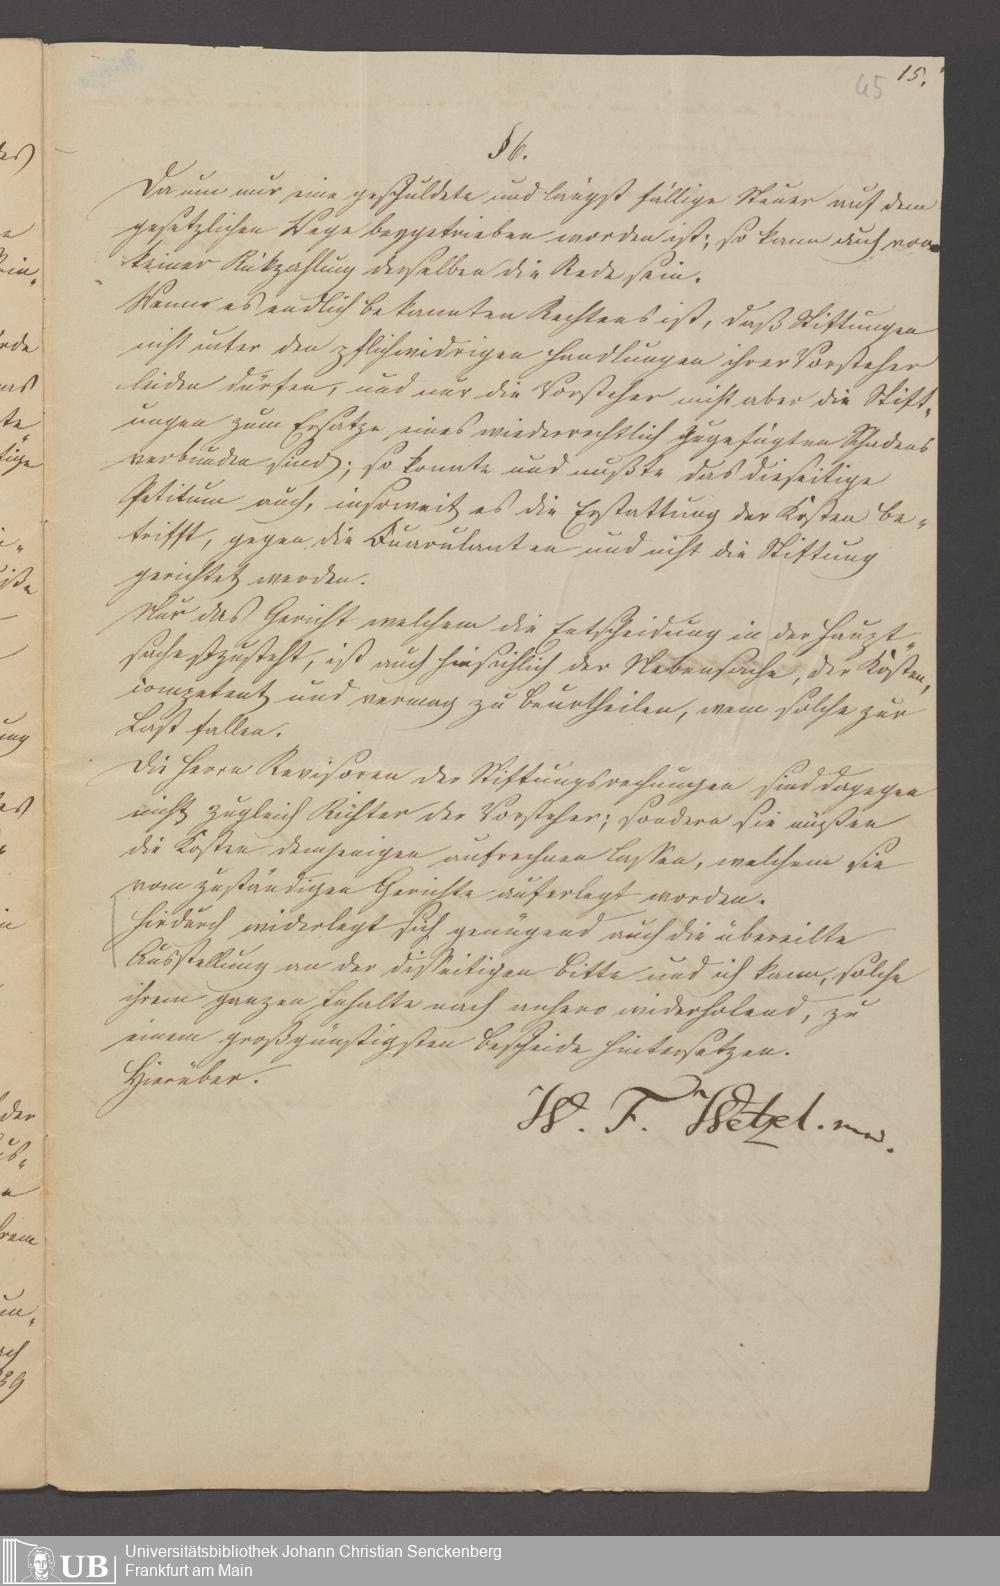 15.
45
§ 6.
Da nun nur eine geschuldete und längst fällige Steuer auf dem
gesetzlichen Wege beygetrieben worden ist; so kann auch von
keiner Rükzahlung derselben die Rede sein.
Wenn es endlich bekannten Rechtens ist, daß Stiftungen
nicht unter den pflichtwidrigen Handlungen ihrer Vorsteher
leiden dürfen, und nur die Vorsteher nicht aber die Stift-
ungen zum Ersatze eines wiederrechtlich zugefügten Schadens
verbunden sind; so konnte und mußte das dieseitige
Petitum auch, insoweit es die Erstattung der Kosten be-
trifft, gegen die Querulanten und nicht die Stiftung
gerichtet werden.
Nur das Gericht welchem die Entscheidung in der Haupt-
sache zusteht, ist auch hinsichtlich der Nebensache, der Kosten,
competent und vermag zu beurtheilen, wem solche zur
Last fallen.
Die Herrn Revisoren der Stiftungsrechnungen sind dagegen
nicht zugleich Richter der Vorsteher; sondern sie müßen
die Kosten demjenigen aufrechnen lassen, welchem sie
vom zuständigen Gerichte auferlegt worden.
Hierdurch widerlegt sich genügend auch die übereilte
Ausstellung an der disseitigen Bitte und ich kann, solche
ihrem ganzen Inhalte nach anhero widerholend, zu
einem großgünstigsten Bescheide hintersetzen.
Hierüber.
W. F. Wetzel.
UB
Universitätsbibliothek Johann Christian Senckenberg
Frankfurt am Main